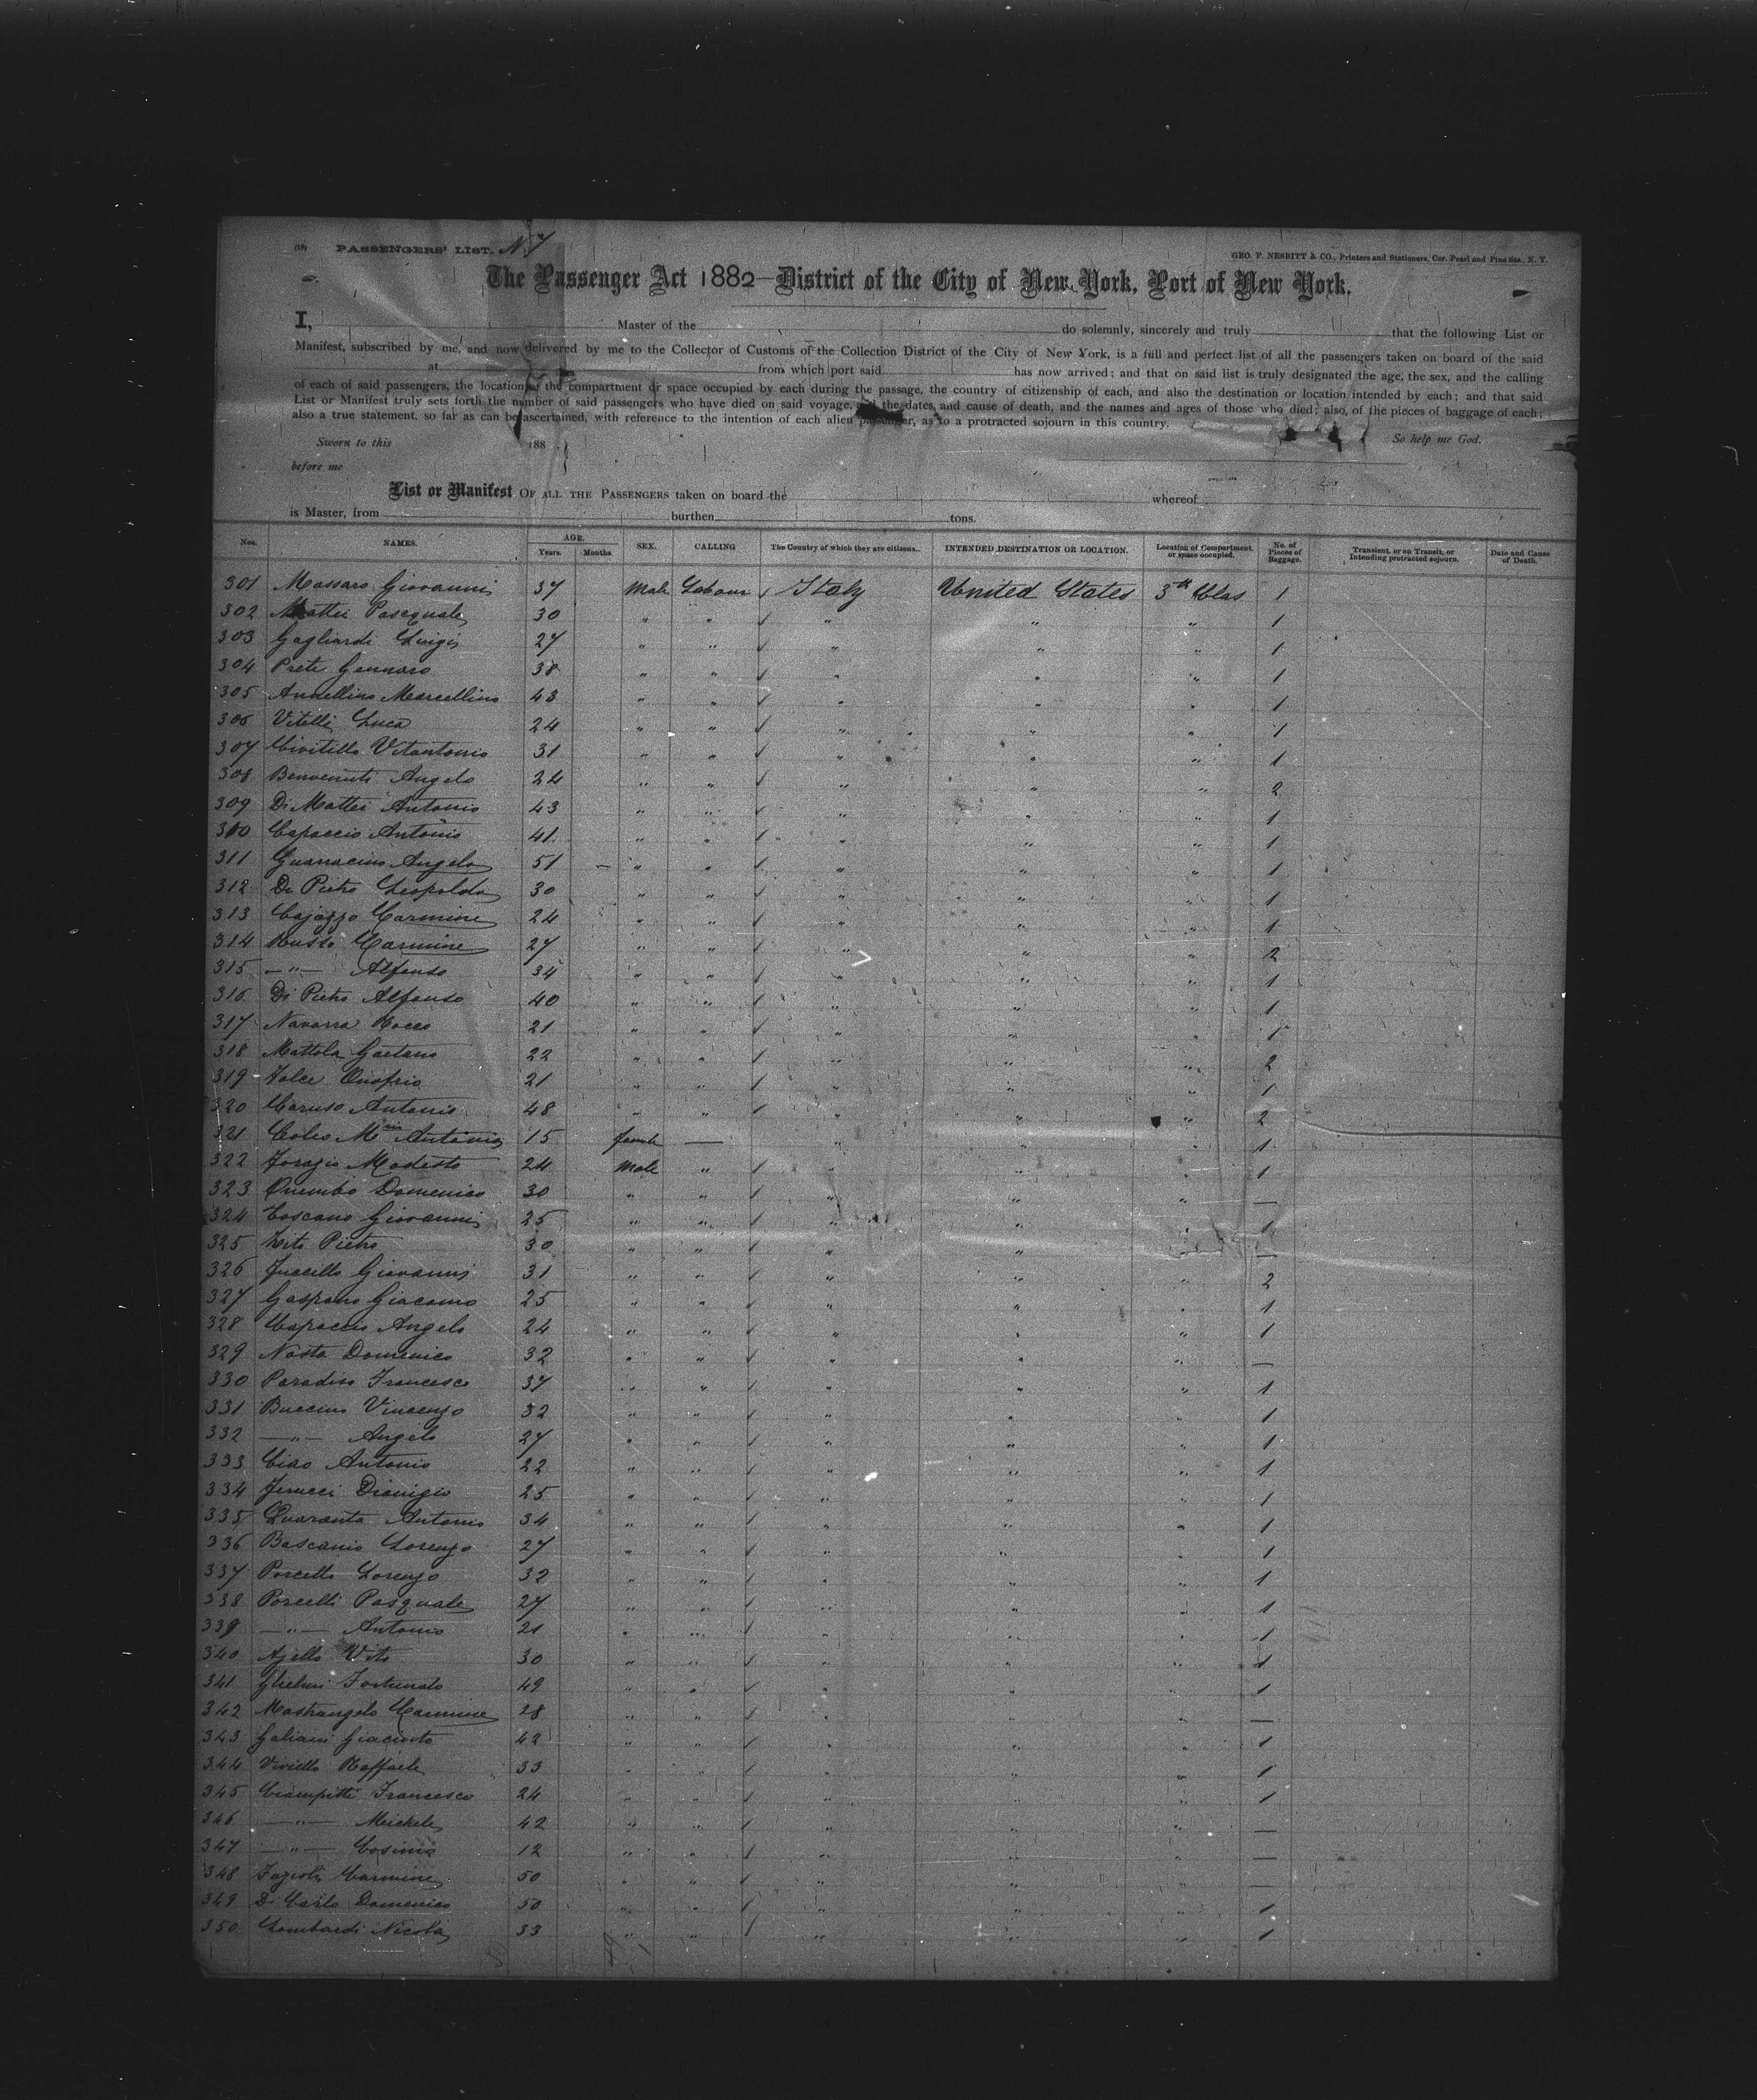 (18) PASSENGERS' LIST. N. 7
GEO. F. NESBITT & CO., Printers and Stationers, Cor. Pearl and Pine Sts., N. Y.
The Passenger Act 1882—District of the City of New York, Port of New York.
I, Master of the do solemnly, sincerely and truly that the following List or
Manifest, subscribed by me, and now delivered by me to the Collector of Customs of the Collection District of the City of New York, is a full and perfect list of all the passengers taken on board of the said
at from which port said has now arrived; and that on said list is truly designated the age, the sex, and the calling
of each of said passengers, the location of the compartment or space occupied by each during the passage, the country of citizenship of each, and also the destination or location intended by each; and that said
List or Manifest truly sets forth the number of said passengers who have died on said voyage, and the dates, and cause of death, and the names and ages of those who died; also, of the pieces of baggage of each;
also a true statement, so far as can be ascertained, with reference to the intention of each alien passenger, as to a protracted sojourn in this country.
Sworn to this 188 So help me God.
before me
List or Manifest OF ALL THE PASSENGERS taken on board the whereof
is Master, from burthen tons.
Nos. NAMES. AGE. Years. Months. SEX. CALLING The Country of which they are citizens. INTENDED DESTINATION OR LOCATION. Location of Compartment, or space occupied. No. of Pieces of Baggage. Transient, or on Transit, or Intending protracted sojourn. Date and Cause of Death.
301 Massaro Giovanni 37 Male Labour Italy United States 3th Clas 1
302 Mattei Pasquale 30 " " " " " 1
303 Gagliardi Luigi 27 " " " " " 1
304 Prete Gennaro 38 " " " " " 1
305 Annellino Marcellino 43 " " " " " 1
306 Vitelli Luca 24 " " " " " 1
307 Civitillo Vitantonio 31 " " " " " 1
308 Benvenuti Angelo 24 " " " " " 2
309 Di Mattei Antonio 43 " " " " " 1
310 Capaccio Antonio 41 " " " " " 1
311 Guarracino Angelo 51 " " " " " 1
312 De Pietro Leopoldo 30 " " " " " 1
313 Cajazzo Carmine 24 " " " " " 1
314 Russo Carmine 27 " " " " " 2
315 —"— Alfonso 34 " " " " " 1
316 Di Pietro Alfonso 40 " " " " " 1
317 Navarra Rocco 21 " " " " " 1
318 Mattola Gaetano 22 " " " " " 2
319 Dolce Onofrio 21 " " " " " 1
320 Caruso Antonio 48 " " " " " 2
321 Coleo Mia Antonia 15 female — " " " 1
322 Modesto 24 Male " " " " 1
323 Domenico 30 " " " " " —
324 Toscano Giovanni 25 " " " " " 1
325 Zito Pietro 30 " " " " " —
326 Giovanni 31 " " " " " 2
327 Gaspano Giacomo 25 " " " " " 1
328 Capaccio Angelo 24 " " " " " 1
329 Nasta Domenico 32 " " " " " —
330 Paradiso Francesco 37 " " " " " 1
331 Buccino Vincenzo 32 " " " " " 1
332 —"— Angelo 27 " " " " " 1
333 Ciao Antonio 22 " " " " " 1
334 Dionigio 25 " " " " " 1
335 Quaranta Antonio 34 " " " " " 1
336 Bascanio Lorenzo 27 " " " " " 1
337 Porcelli Lorenzo 32 " " " " " 1
338 Porcelli Pasquale 27 " " " " " 1
339 —"— Antonio 21 " " " " " 1
340 Ajello Vito 30 " " " " " 1
341 Fortunato 49 " " " " " 1
342 Mastrangelo Carmine 28 " " " " " —
343 Galiani Giacinto 42 " " " " " 1
344 Viviello Raffaele 33 " " " " " 1
345 Ciampitti Francesco 24 " " " " " 1
346 —"— Meichele 42 " " " " " —
347 —"— Cosimo 12 " " " " " —
348 Fazioli Carmine 50 " " " " " —
349 Di Carlo Domenico 50 " " " " " 1
350 Lombardi Nicola 33 " " " " " 1